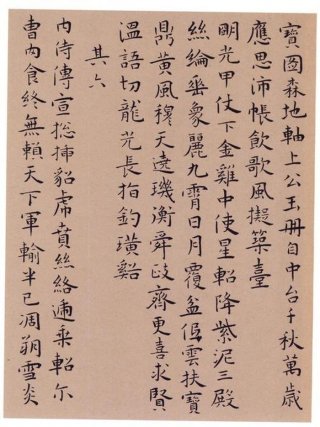 寶圖森地軸上公玉冊自中台千秋萬歲
應思沛帳飲歌風擬築臺
明光甲仗下金雞中使星軺降紫泥三殿
絲綸垂象麗九霄日月覆盆低雲扶寶
鼎黃風穆天遠璣衡舜政齊更喜求賢
溫語切龍光長指釣璜谿
其六
內侍傳宣總插貂虎賁絲絡遞乘軺尔
曹肉食終無賴天下軍輸半已凋朔雪炎